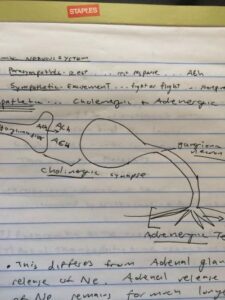 STAPLES
NERVOUS SYSTEM
Parasympathetic - Rest ... ACh
Sympathetic - Excitement ... fight or flight
Cholinergic & Adrenergic
ACh
ACh
ganglionic
neuron
Cholinergic synapse
Adrenergic Te
• This differs from Adrenal glan
release of Ne. Adrenal release
of Ne remains for much longe